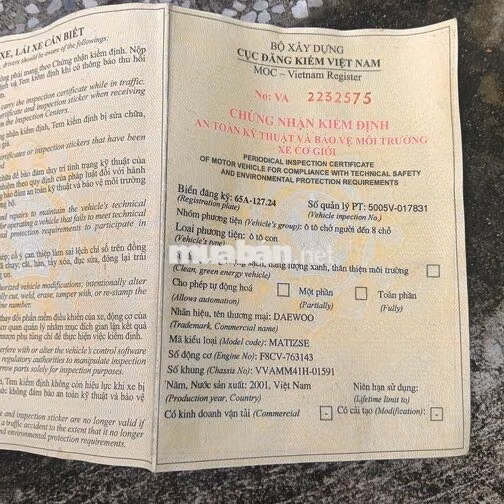 XE, LÁI XE CẦN BIẾT
drivers should be aware of the followings:
phải mang theo Chứng nhận kiểm định. Nộp
Tem kiểm định khi có thông báo thu hồi
carry the inspection certificate while in traffic.
certificate and inspection sticker when receiving
the Inspection Centers.
nhận kiểm định, Tem kiểm định bị sửa chữa,
certificates or inspection stickers that have been
để bảo đảm duy trì tình trạng kỹ thuật của
nhiệm theo quy định của pháp luật đối với hành
bảo đảm an toàn kỹ thuật và bảo vệ môi trường
bộ.
and repairs to maintain the vehicle's technical
for operating a vehicle that fails to meet technical
protection requirements to participate in
cố ý can thiệp làm sai lệch chỉ số trên đồng
cắt, hàn, tẩy xóa, đục sửa, đóng lại trái
unauthorized vehicle modifications; intentionally alter
cut, weld, erase, tamper with, or re-stamp the
number.
thay đổi phần mềm điều khiển của xe, động cơ của
cơ quan quản lý nhằm mục đích gian lận kết quả
phụ tùng chỉ để thực hiện việc kiểm định.
interfere with or alter the vehicle's control software
regulatory authorities to manipulate inspection
parts solely for inspection purposes.
Tem kiểm định không còn hiệu lực khi xe bị
không đảm bảo an toàn kỹ thuật và bảo vệ
and inspection sticker are no longer valid if
a traffic accident to the extent that it no longer
and environmental protection requirements.
BỘ XÂY DỰNG
CỤC ĐĂNG KIỂM VIỆT NAM
MOC – Vietnam Register
No: VA 2232575
CHỨNG NHẬN KIỂM ĐỊNH
AN TOÀN KỸ THUẬT VÀ BẢO VỆ MÔI TRƯỜNG
XE CƠ GIỚI
PERIODICAL INSPECTION CERTIFICATE
OF MOTOR VEHICLE FOR COMPLIANCE WITH TECHNICAL SAFETY
AND ENVIRONMENTAL PROTECTION REQUIREMENTS
Biển đăng ký: 65A-127.24 Số quản lý PT: 5005V-017831
(Registration plate) (Vehicle inspection No.)
Nhóm phương tiện (Vehicle's group): ô tô chở người đến 8 chỗ
Loại phương tiện: ô tô con
(Vehicle's type)
muaban.net
sạch, năng lượng xanh, thân thiện môi trường
(Clean, green energy vehicle)
Cho phép tự động hoá Một phần Toàn phần
(Allows automation) (Partially) (Fully)
Nhãn hiệu, tên thương mại: DAEWOO
(Trademark, Commercial name)
Mã kiểu loại (Model code): MATIZSE
Số động cơ (Engine No): F8CV-763143
Số khung (Chassis No): VVAMM41H-01591
Năm, Nước sản xuất: 2001, Việt Nam Niên hạn sử dụng:
(Production year, Country) (Lifetime limit to)
Có kinh doanh vận tải (Commercial - Có cải tạo (Modification): -